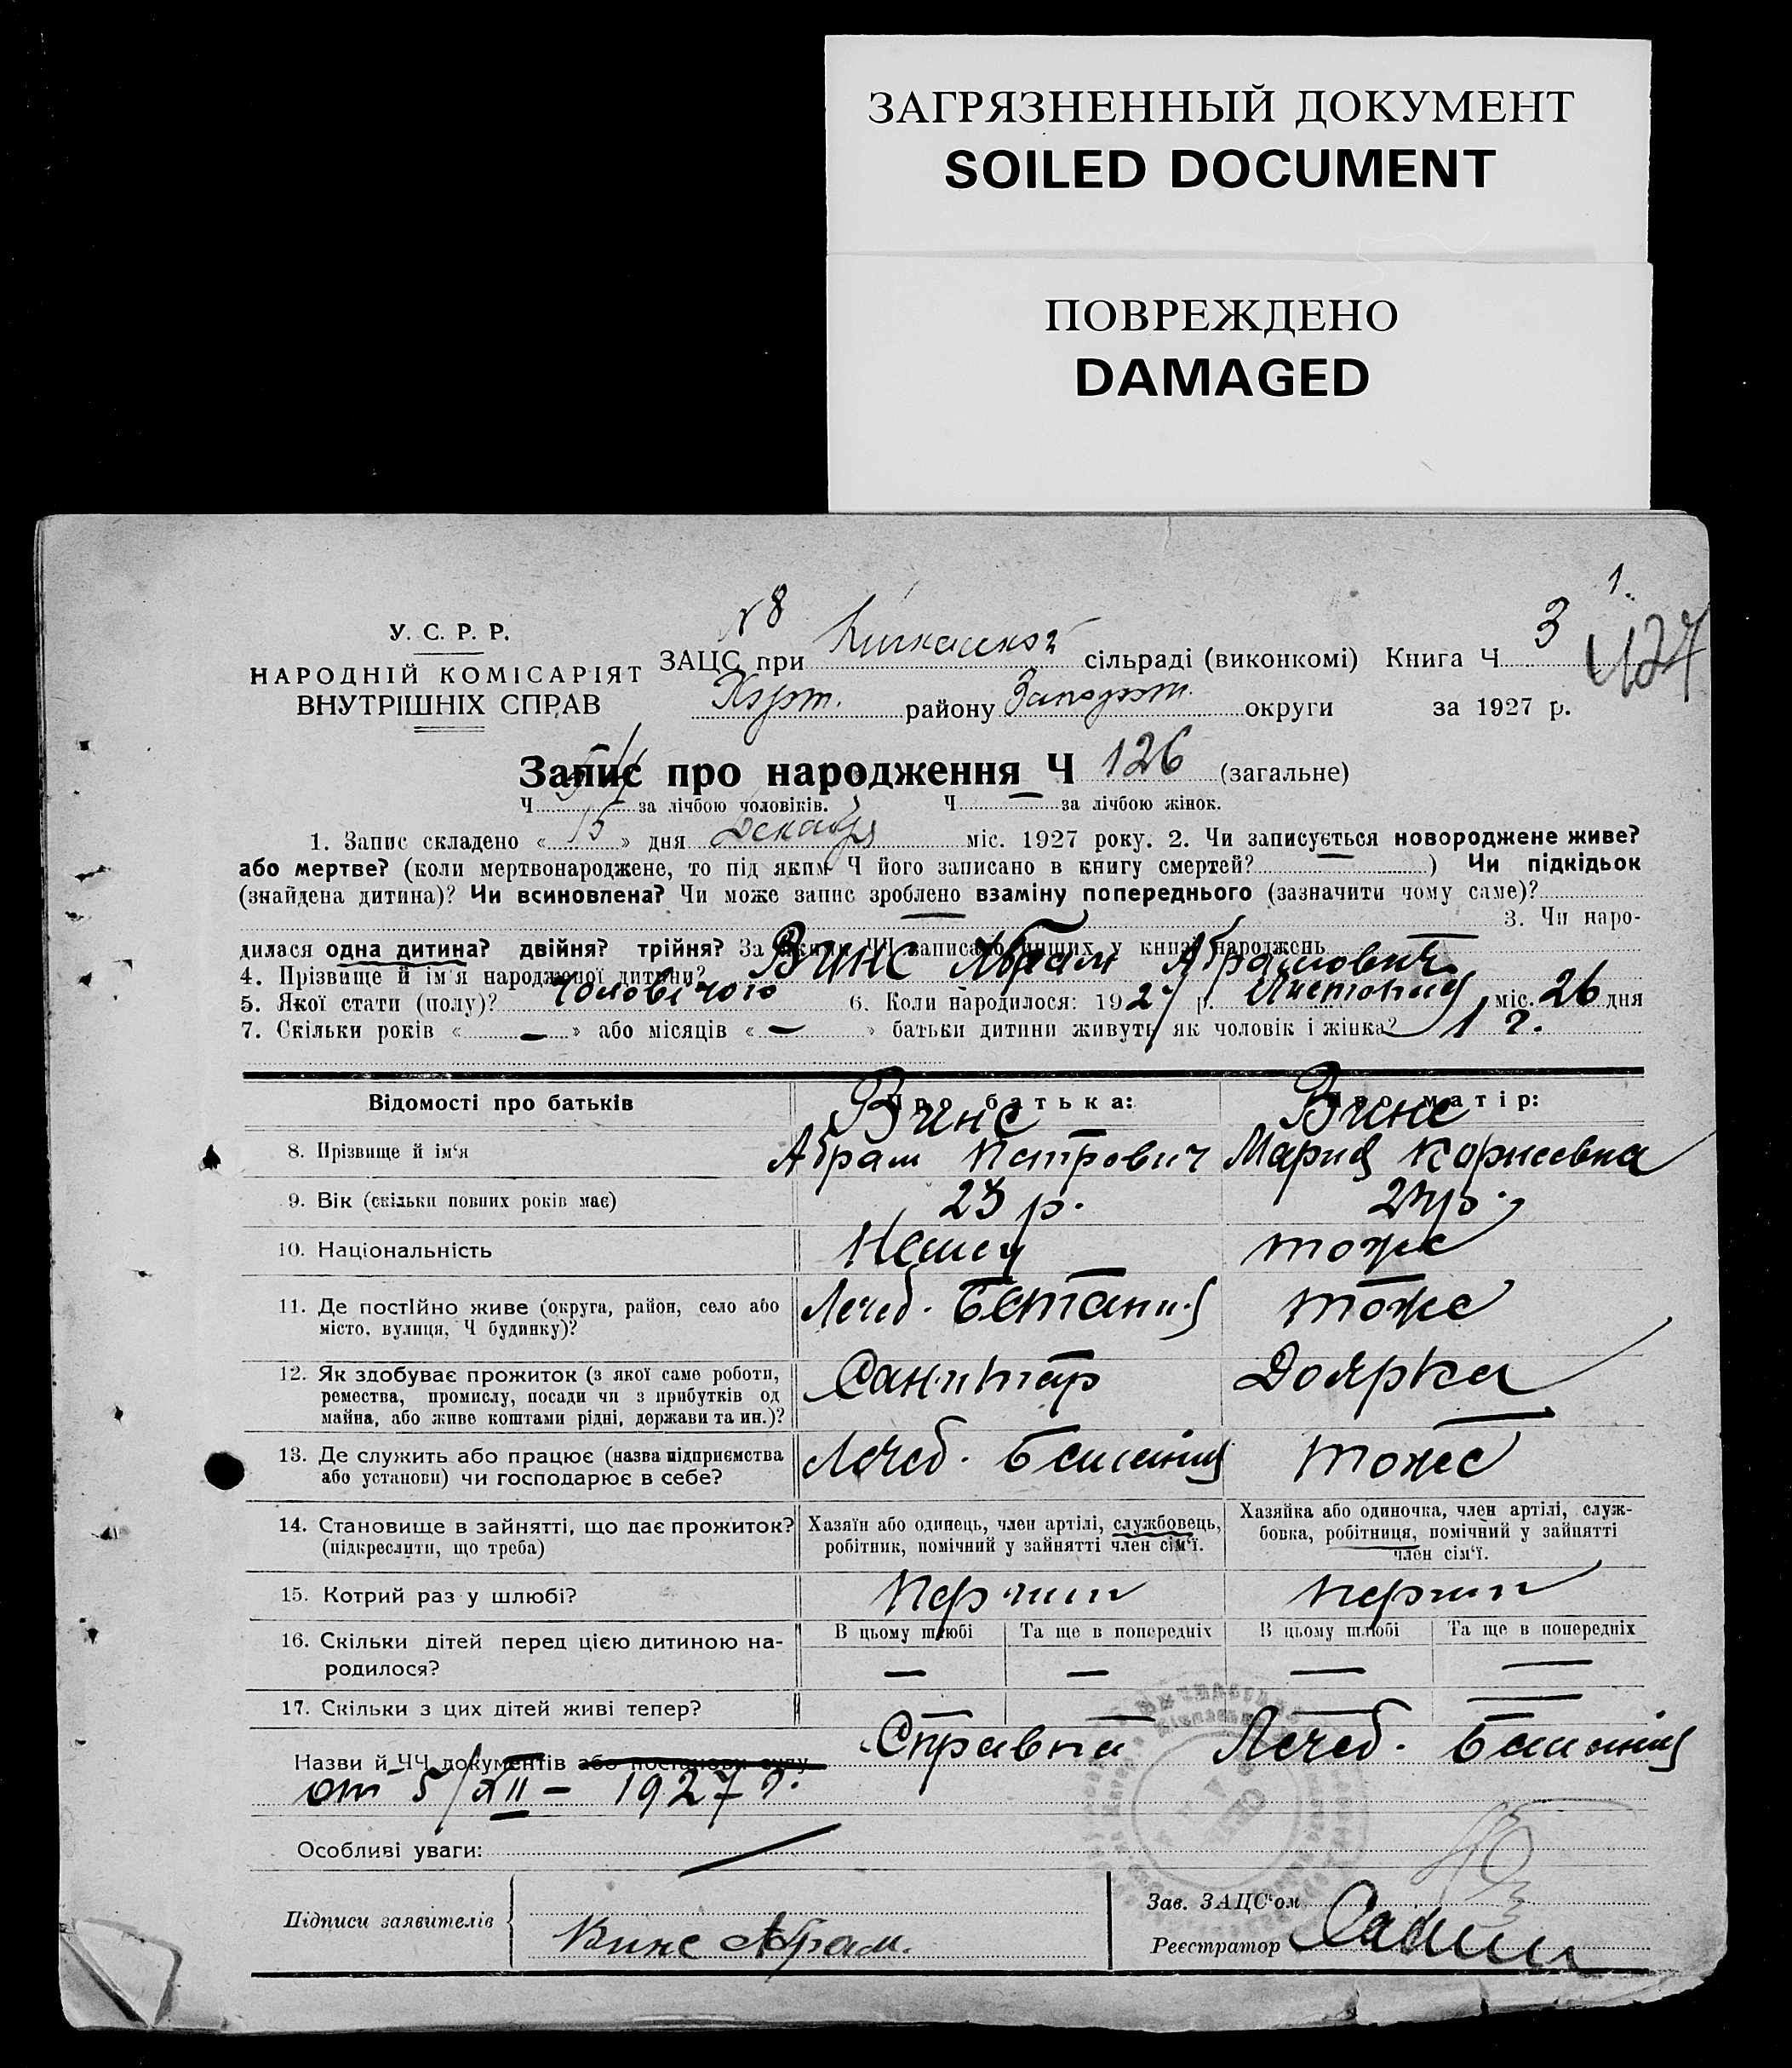 ЗАГРЯЗНЕННЫЙ ДОКУМЕНТ
SOILED DOCUMENT
ПОВРЕЖДЕНО
DAMAGED
1.
У. С. Р. Р.
НАРОДНІЙ КОМІСАРІЯТ
ВНУТРІШНІХ СПРАВ
№ 8
ЗАЦС при сільраді (виконкомі) Книга Ч 3
427
Хорт. району Запорож. округи за 1927 р.
Запис про народження Ч 126 (загальне)
Ч за лічбою чоловіків. Ч — за лічбою жінок.
1. Запис складено « 15 » дня Декабря міс. 1927 року. 2. Чи записується новороджене живе?
або мертве? (коли мертвонароджене, то під яким Ч його записано в книгу смертей? — ) Чи підкідьок
(знайдена дитина)? Чи всиновлена? Чи може запис зроблено взаміну попереднього (зазначити чому саме)?
— 3. Чи наро-
дилася одна дитина? двійня? трійня? За якими ЧЧ записано инших у книзі народжень —
4. Прізвище й ім'я народженої дитини? Винс Абрам Абрамович
5. Якої стати (полу)? Чоловічого 6. Коли народилося: 1927 р. міс. 26 дня
7. Скільки років « — » або місяців « — » батьки дитини живуть як чоловік і жінка? 1 г.
Відомості про батьків Про батька: Про матір:
Винс Винс
8. Прізвище й ім'я Абрам Петрович Мария Корнеевна
9. Вік (скільки повних років має) 23 р.
10. Національність Немец тоже
11. Де постійно живе (округа, район, село або місто, вулиця, Ч будинку)? Лечеб. Бетания тоже
12. Як здобуває прожиток (з якої саме роботи, ремества, промислу, посади чи з прибутків од майна, або живе коштами рідні, держави та ин.)? Санитар Доярка
13. Де служить або працює (назва підприємства або установи) чи господарює в себе? Лечеб. Бетания тоже
14. Становище в зайнятті, що дає прожиток? (підкреслити, що треба) Хазяїн або одинець, член артілі, службовець, робітник, помічний у зайнятті член сім'ї. Хазяйка або одиночка, член артілі, служ-бовка, робітниця, помічний у зайнятті член сім'ї.
15. Котрий раз у шлюбі? Перчин Перчин
16. Скільки дітей перед цією дитиною на-родилося? В цьому шлюбі — Та ще в попередніх — В цьому шлюбі — Та ще в попередніх —
17. Скільки з цих дітей живі тепер? — — — —
Назви й ЧЧ документів або постанови суду Справка Лечеб. Бетания
от 5/XII – 1927 г.
Особливі уваги:
Підписи заявителів Винс Абрам.
Зав. ЗАЦС'ом
Реєстратор